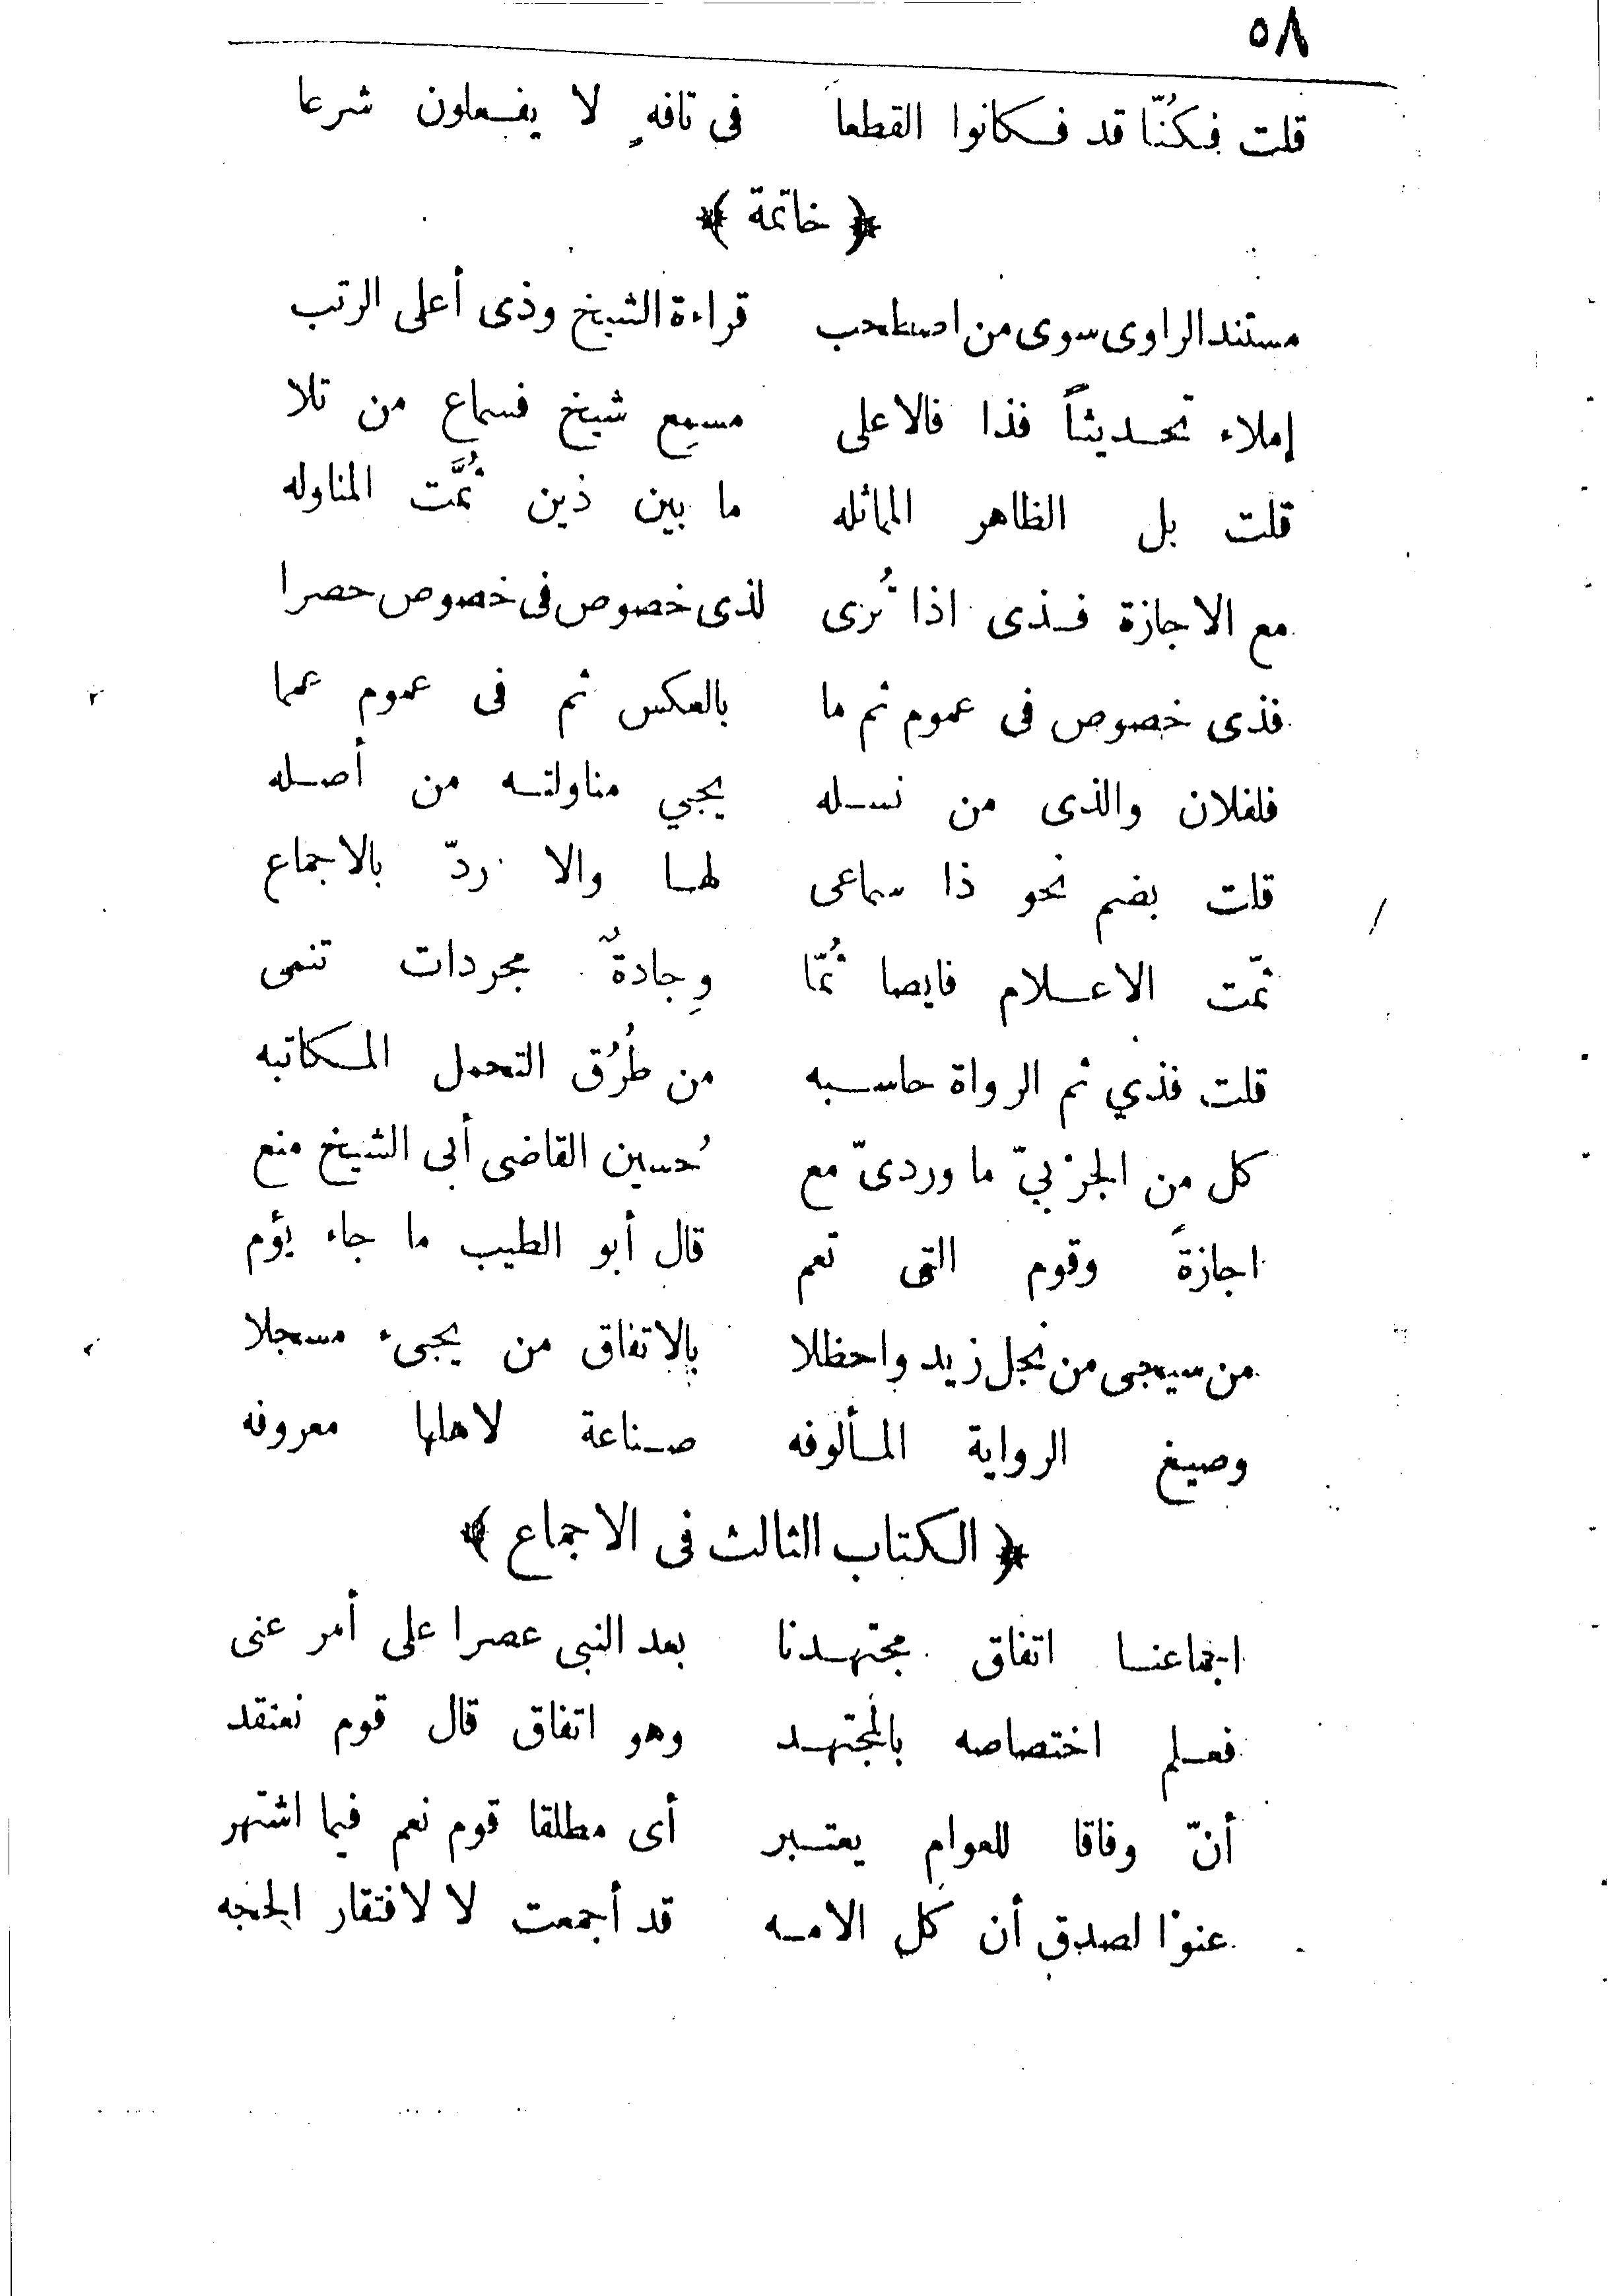 ٥٨
قلت فكُنّا قد فكانوا القطعا في تافهٍ لا يفعلون شرعا
﴿ خاتمة ﴾
مستند الراوى سوى من اصطحب قراءة الشيخ وذى أعلى الرتب
إملاء تحديثاً فذا فالاعلى مسمِع شيخ فسماع من تلا
قلت بل الظاهر المماثله ما بين ذين ثُمَّت المناوله
مع الاجازة فذى اذا تُرى لذى خصوص فى خصوص حصرا
فذى خصوص فى عموم ثم ما بالعكس ثم فى عموم عمما
فلفلان والذى من نسله يجي مناولته من أصله
قلت بضم نحو ذا سماعى لها والا ردّ بالاجماع
ثمّت الاعلام فايصا ثُمّا وِجادةٌ مجردات تنمى
قلت فذي ثم الرواة حاسبه من طُرُق التحمل المكاتبه
كل من الجزبيّ ما وردىّ مع حُسين القاضى أبى الشيخ منع
اجازةً وقوم التى تعم قال أبو الطيب ما جاء يؤم
من سيجى من نجل زيد واحظلا بالاتفاق من يجىء مسجلا
وصيغ الرواية المألوفه صناعة لاهلها معروفه
﴿ الكتاب الثالث فى الاجماع ﴾
اجماعنا اتفاق مجتهدنا بعد النبى عصرا على أمر عنى
فعلم اختصاصه بالمجتهد وهو اتفاق قال قوم نعتقد
أنّ وفاقا للعوام يعتبر أى مطلقا قوم نعم فيما اشتهر
عنوْا لصدق أن كل الامه قد أجمعت لا لافتقار الحجه